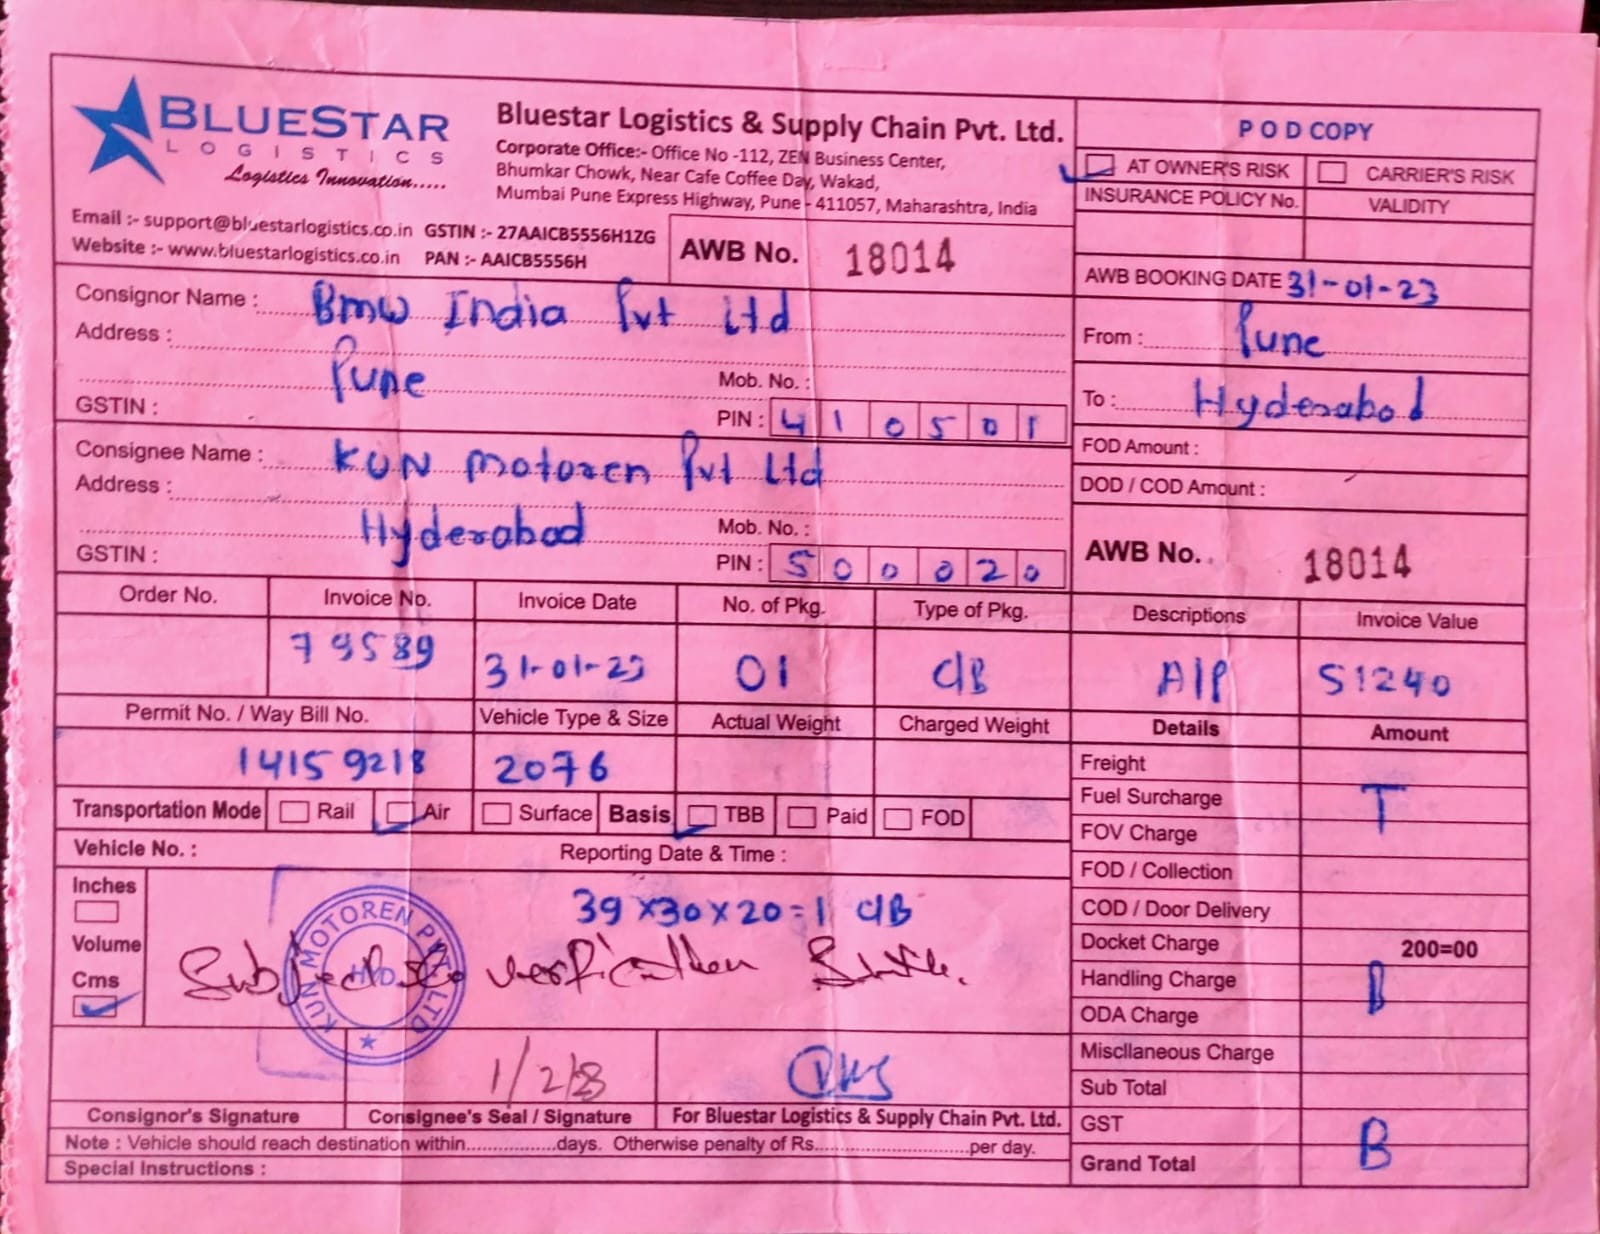 BLUESTAR
LOGISTICS
Logistics Innovation.....
Bluestar Logistics & Supply Chain Pvt. Ltd.
Corporate Office:- Office No -112, ZEN Business Center,
Bhumkar Chowk, Near Cafe Coffee Day, Wakad,
Mumbai Pune Express Highway, Pune - 411057, Maharashtra, India
Email :- support@bluestarlogistics.co.in GSTIN :- 27AAICB5556H1ZG
Website :- www.bluestarlogistics.co.in PAN :- AAICB5556H
AWB No. 18014
POD COPY
AT OWNER'S RISK CARRIER'S RISK
INSURANCE POLICY No. VALIDITY
AWB BOOKING DATE 31-01-23
From : Pune
To : Hyderabad
FOD Amount :
DOD / COD Amount :
AWB No. 18014
Consignor Name : BMW India Pvt Ltd
Address :
Pune Mob. No. :
GSTIN : PIN : 410501
Consignee Name : KUN Motoren Pvt Ltd
Address :
Hyderabad Mob. No. :
GSTIN : PIN : 500020
Order No. Invoice No. Invoice Date No. of Pkg. Type of Pkg. Descriptions Invoice Value
79589 31-01-23 01 C/B A/P 51240
Permit No. / Way Bill No. Vehicle Type & Size Actual Weight Charged Weight Details Amount
14159218 2076
Freight
Fuel Surcharge T
FOV Charge
FOD / Collection
COD / Door Delivery
Docket Charge 200=00
Handling Charge B
ODA Charge
Miscllaneous Charge
Sub Total
GST
Grand Total B
Transportation Mode Rail Air Surface Basis TBB Paid FOD
Vehicle No. : Reporting Date & Time :
Inches
Volume
Cms
39x30x20=1 C/B
Subject to verification
KUN MOTOREN PVT. LTD
HYD.
1/2/23
Consignor's Signature Consignee's Seal / Signature For Bluestar Logistics & Supply Chain Pvt. Ltd.
Note : Vehicle should reach destination within.................days. Otherwise penalty of Rs.............................per day.
Special Instructions :